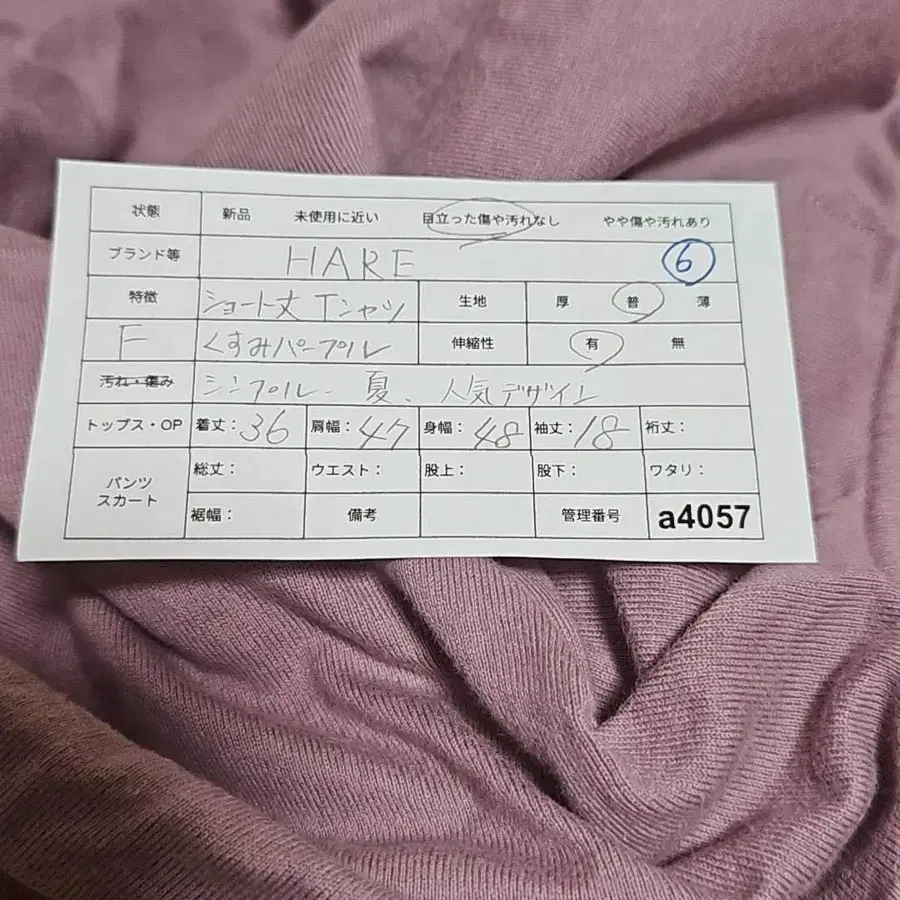 状態 新品 未使用に近い 目立った傷や汚れなし やや傷や汚れあり
ブランド等 HARE 6
特徴 ショート丈 Tシャツ 生地 厚 普 薄
F くすみパープル 伸縮性 有 無
汚れ・傷み シンプル、夏、人気デザイン
トップス・OP 着丈:36 肩幅:47 身幅:48 袖丈:18 裄丈:
パンツ スカート 総丈: ウエスト: 股上: 股下: ワタリ:
裾幅: 備考 管理番号 a4057